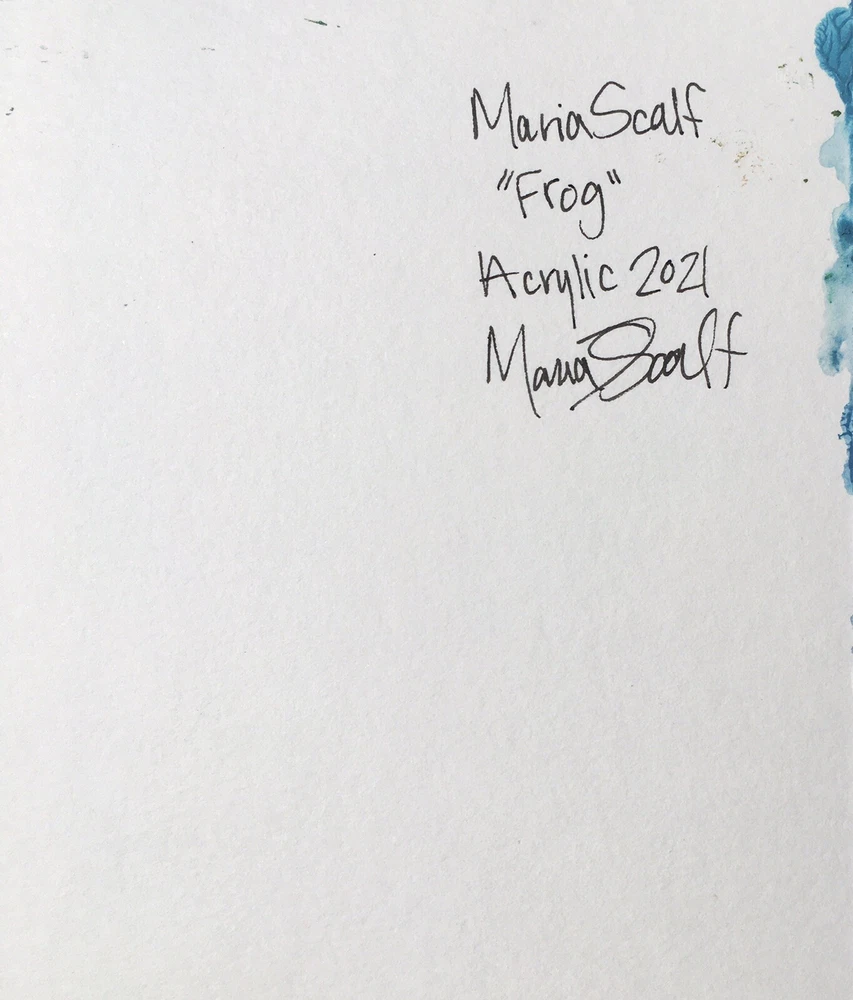 Maria Scalf
"Frog"
Acrylic 2021
Maria Scalf